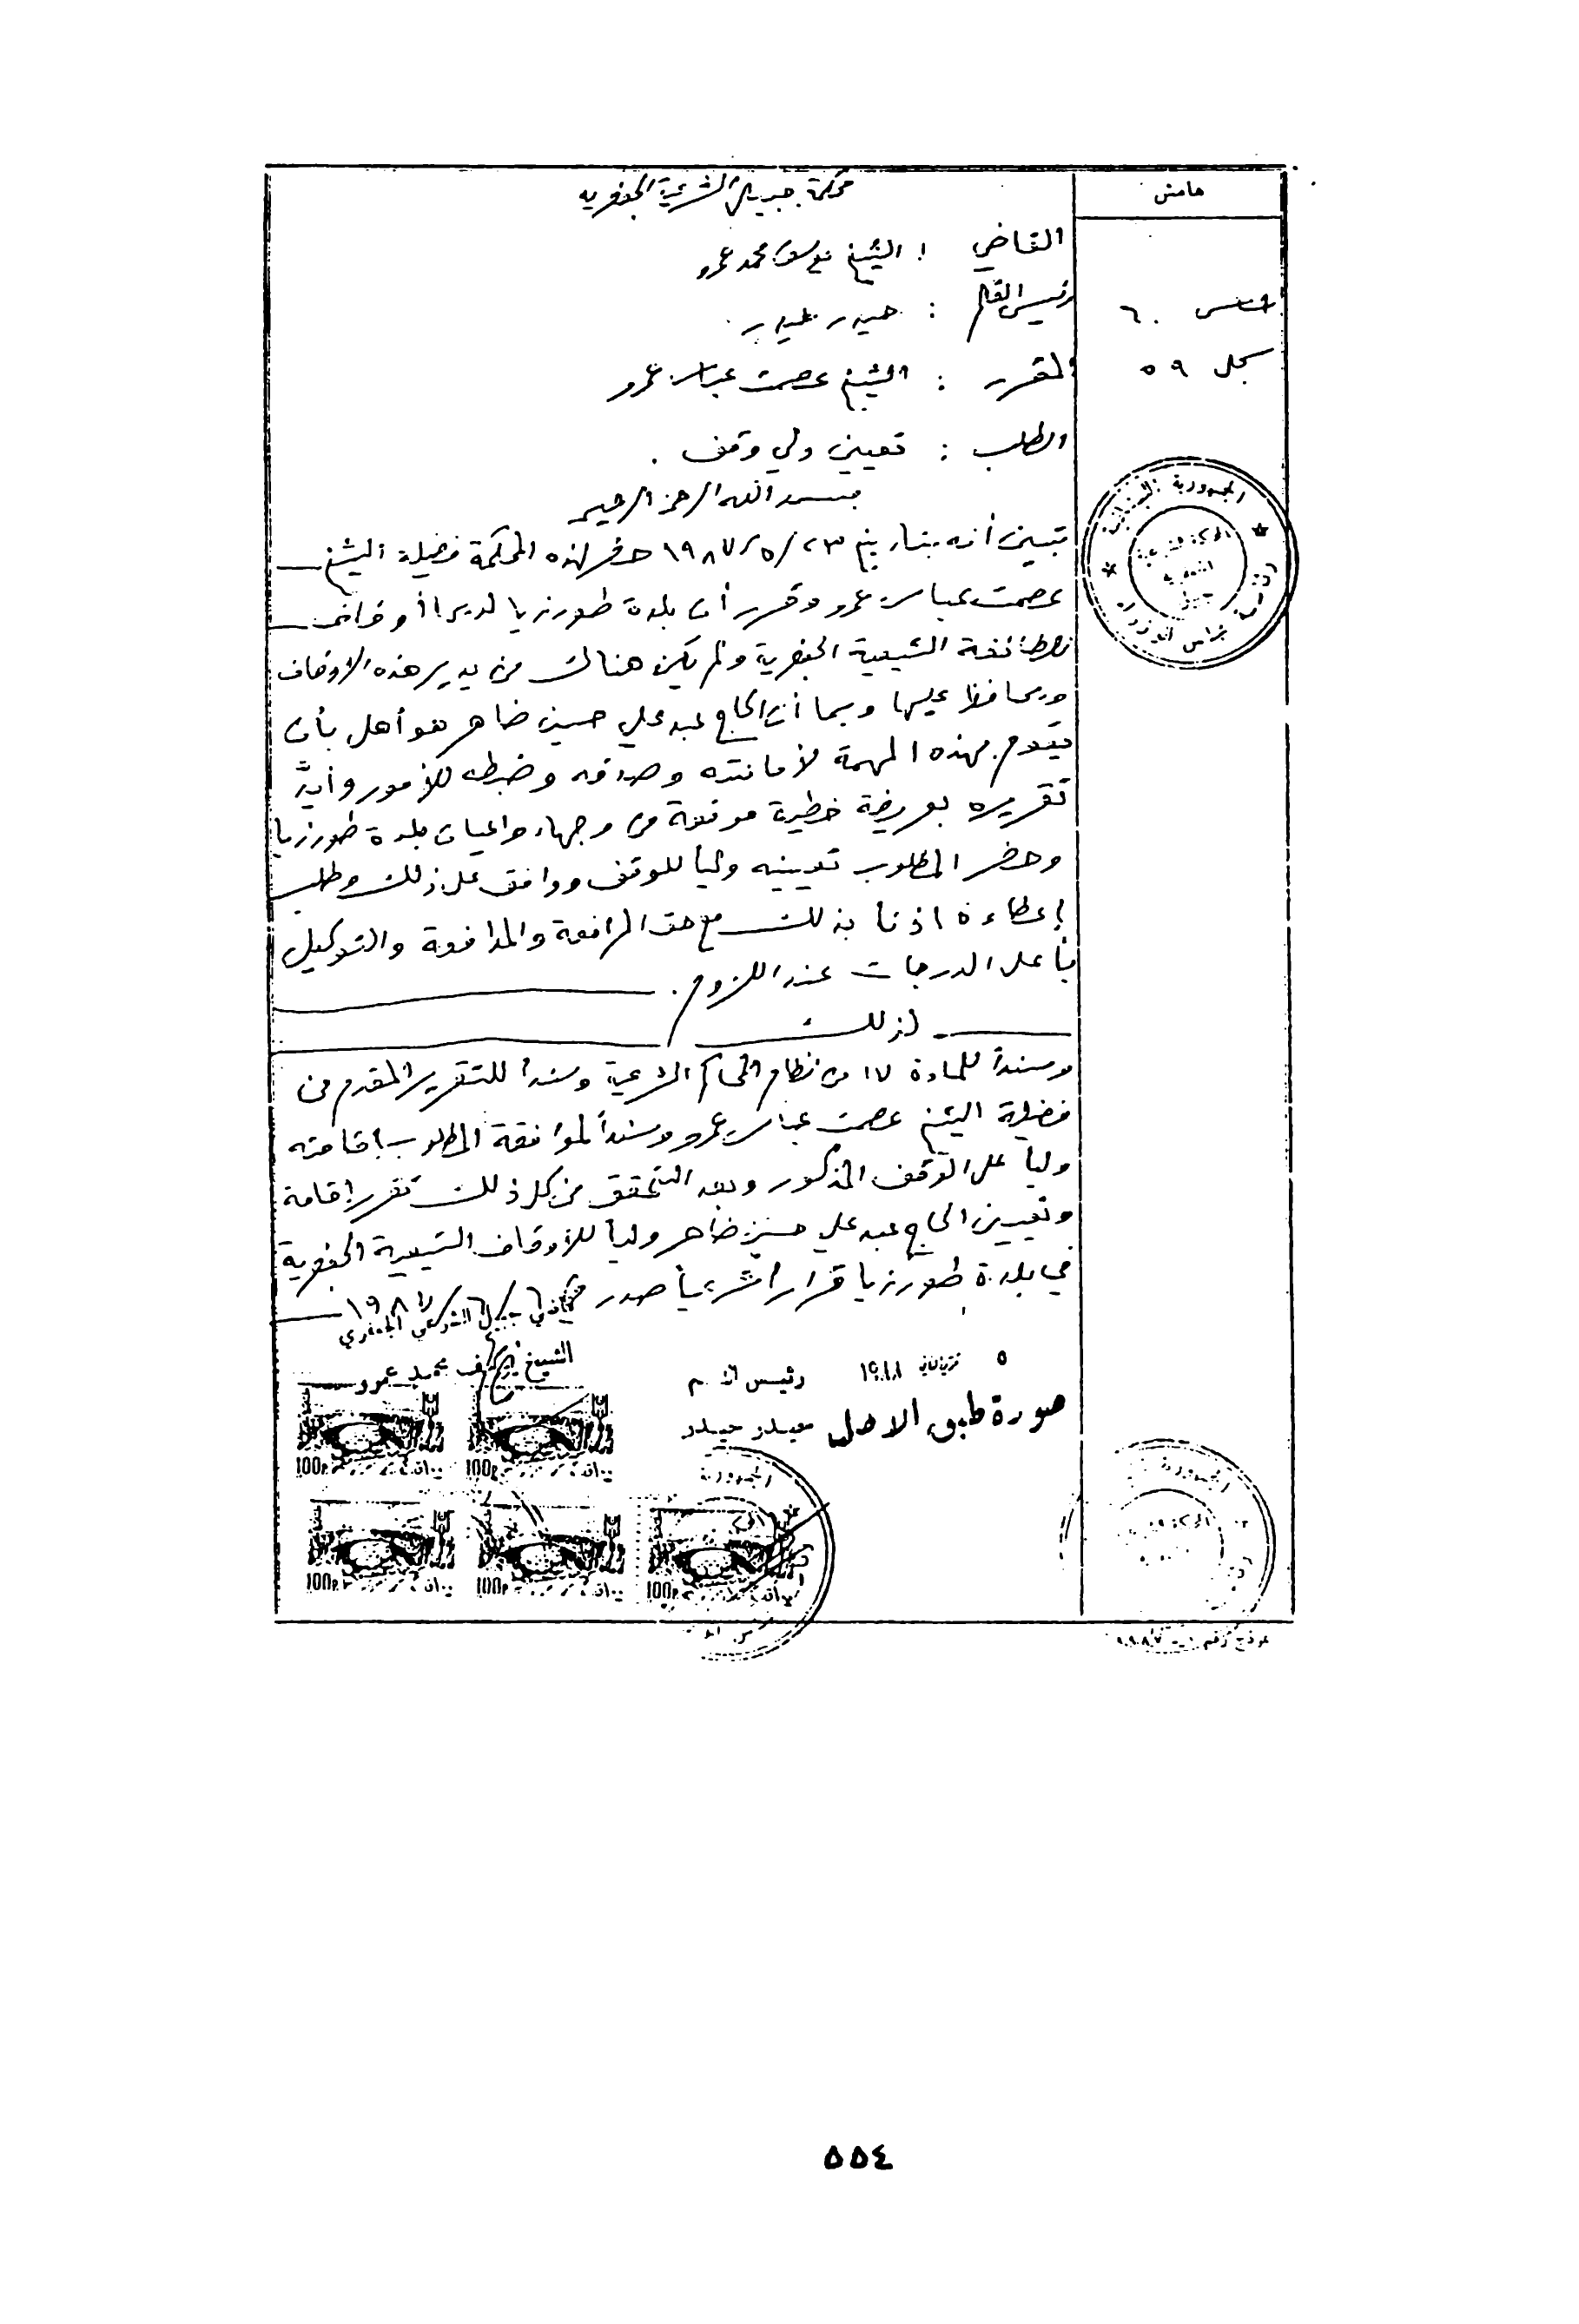 هامش
محكمة جبيل الشرعية الجعفرية
القاضي : الشيخ يوسف محمد عمرو
رئيس القلم : حيدر حيدر
أساس ٦٠
المقرر : الشيخ عصمت عباس عمرو
سجل ٥٩
الطلب : تعيين ولي وقف .
بسم الله الرحمن الرحيم
تبين أنه بتاريخ ٢٣/٥/١٩٨٧ حضر لهذه المحكمة فضيلة الشيخ
عصمت عباس عمرو وقرر أن بلدة طورزيا لديها أوقاف
للطائفة الشيعية الجعفرية ولم يكن هناك من يدير هذه الأوقاف
ويحافظ عليها وبما أن الحاج عبد علي حسين ضاهر هو أهل بأن
يقوم بهذه المهمة لأمانته وصدقه وضبطه للأمور وأيدَّ
تقريره بعريضة خطية موقعة من وجهاء واعيان بلدة طورزيا
وحضر المطلوب تعيينه ولياً للوقف ووافق على ذلك وطلب
إعطاءه اذنا بذلك مع حق المرافعة والمدافعة والتوكيل
بأعلى الدرجات عند اللزوم .
لذلك
وسنداً للمادة ١٧ من نظام المحاكم الشرعية وسنداً للتقرير المقدم من
فضيلة الشيخ عصمت عباس عمرو وسنداً لموافقة المطلوب إقامته
ولياً على الوقف المذكور وبعد التحقق من كل ذلك تقرر إقامة
وتعيين الحاج عبد علي حسين ضاهر ولياً للأوقاف الشيعية الجعفرية
في بلدة طورزيا قراراً شرعياً صدر في ٦/٦/١٩٨٧
قاضي جبيل الشرعي الجعفري
الشيخ يوسف محمد عمرو
٥ تشرين الثاني ١٩٨٨
رئيس القلم
صورة طبق الاصل
حيدر حيدر
الجمهورية اللبنانية
100P
100P
100P
100P
100P
الجمهورية
الجمهورية
٥٥٤